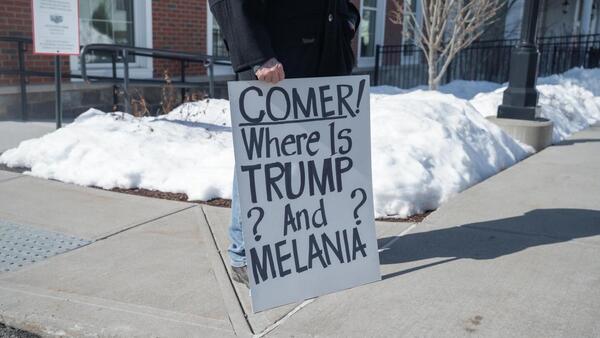 COMER!
Where Is
TRUMP
? And ?
MELANIA